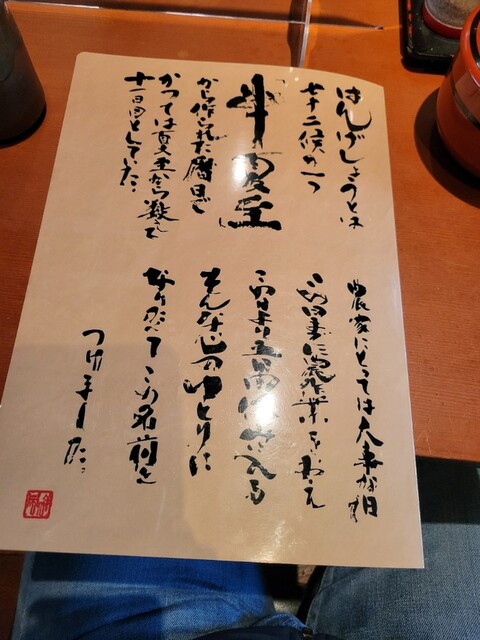 はんげしょうとは
七十二候の一つ
半夏生
から作られた暦日で
かつては夏至から数えて
十一日目としていた。
農家にとっては大事な日
この日までに農作業をおえ
この日より五日間
そんな心のゆとりに
この名前を
つけました。